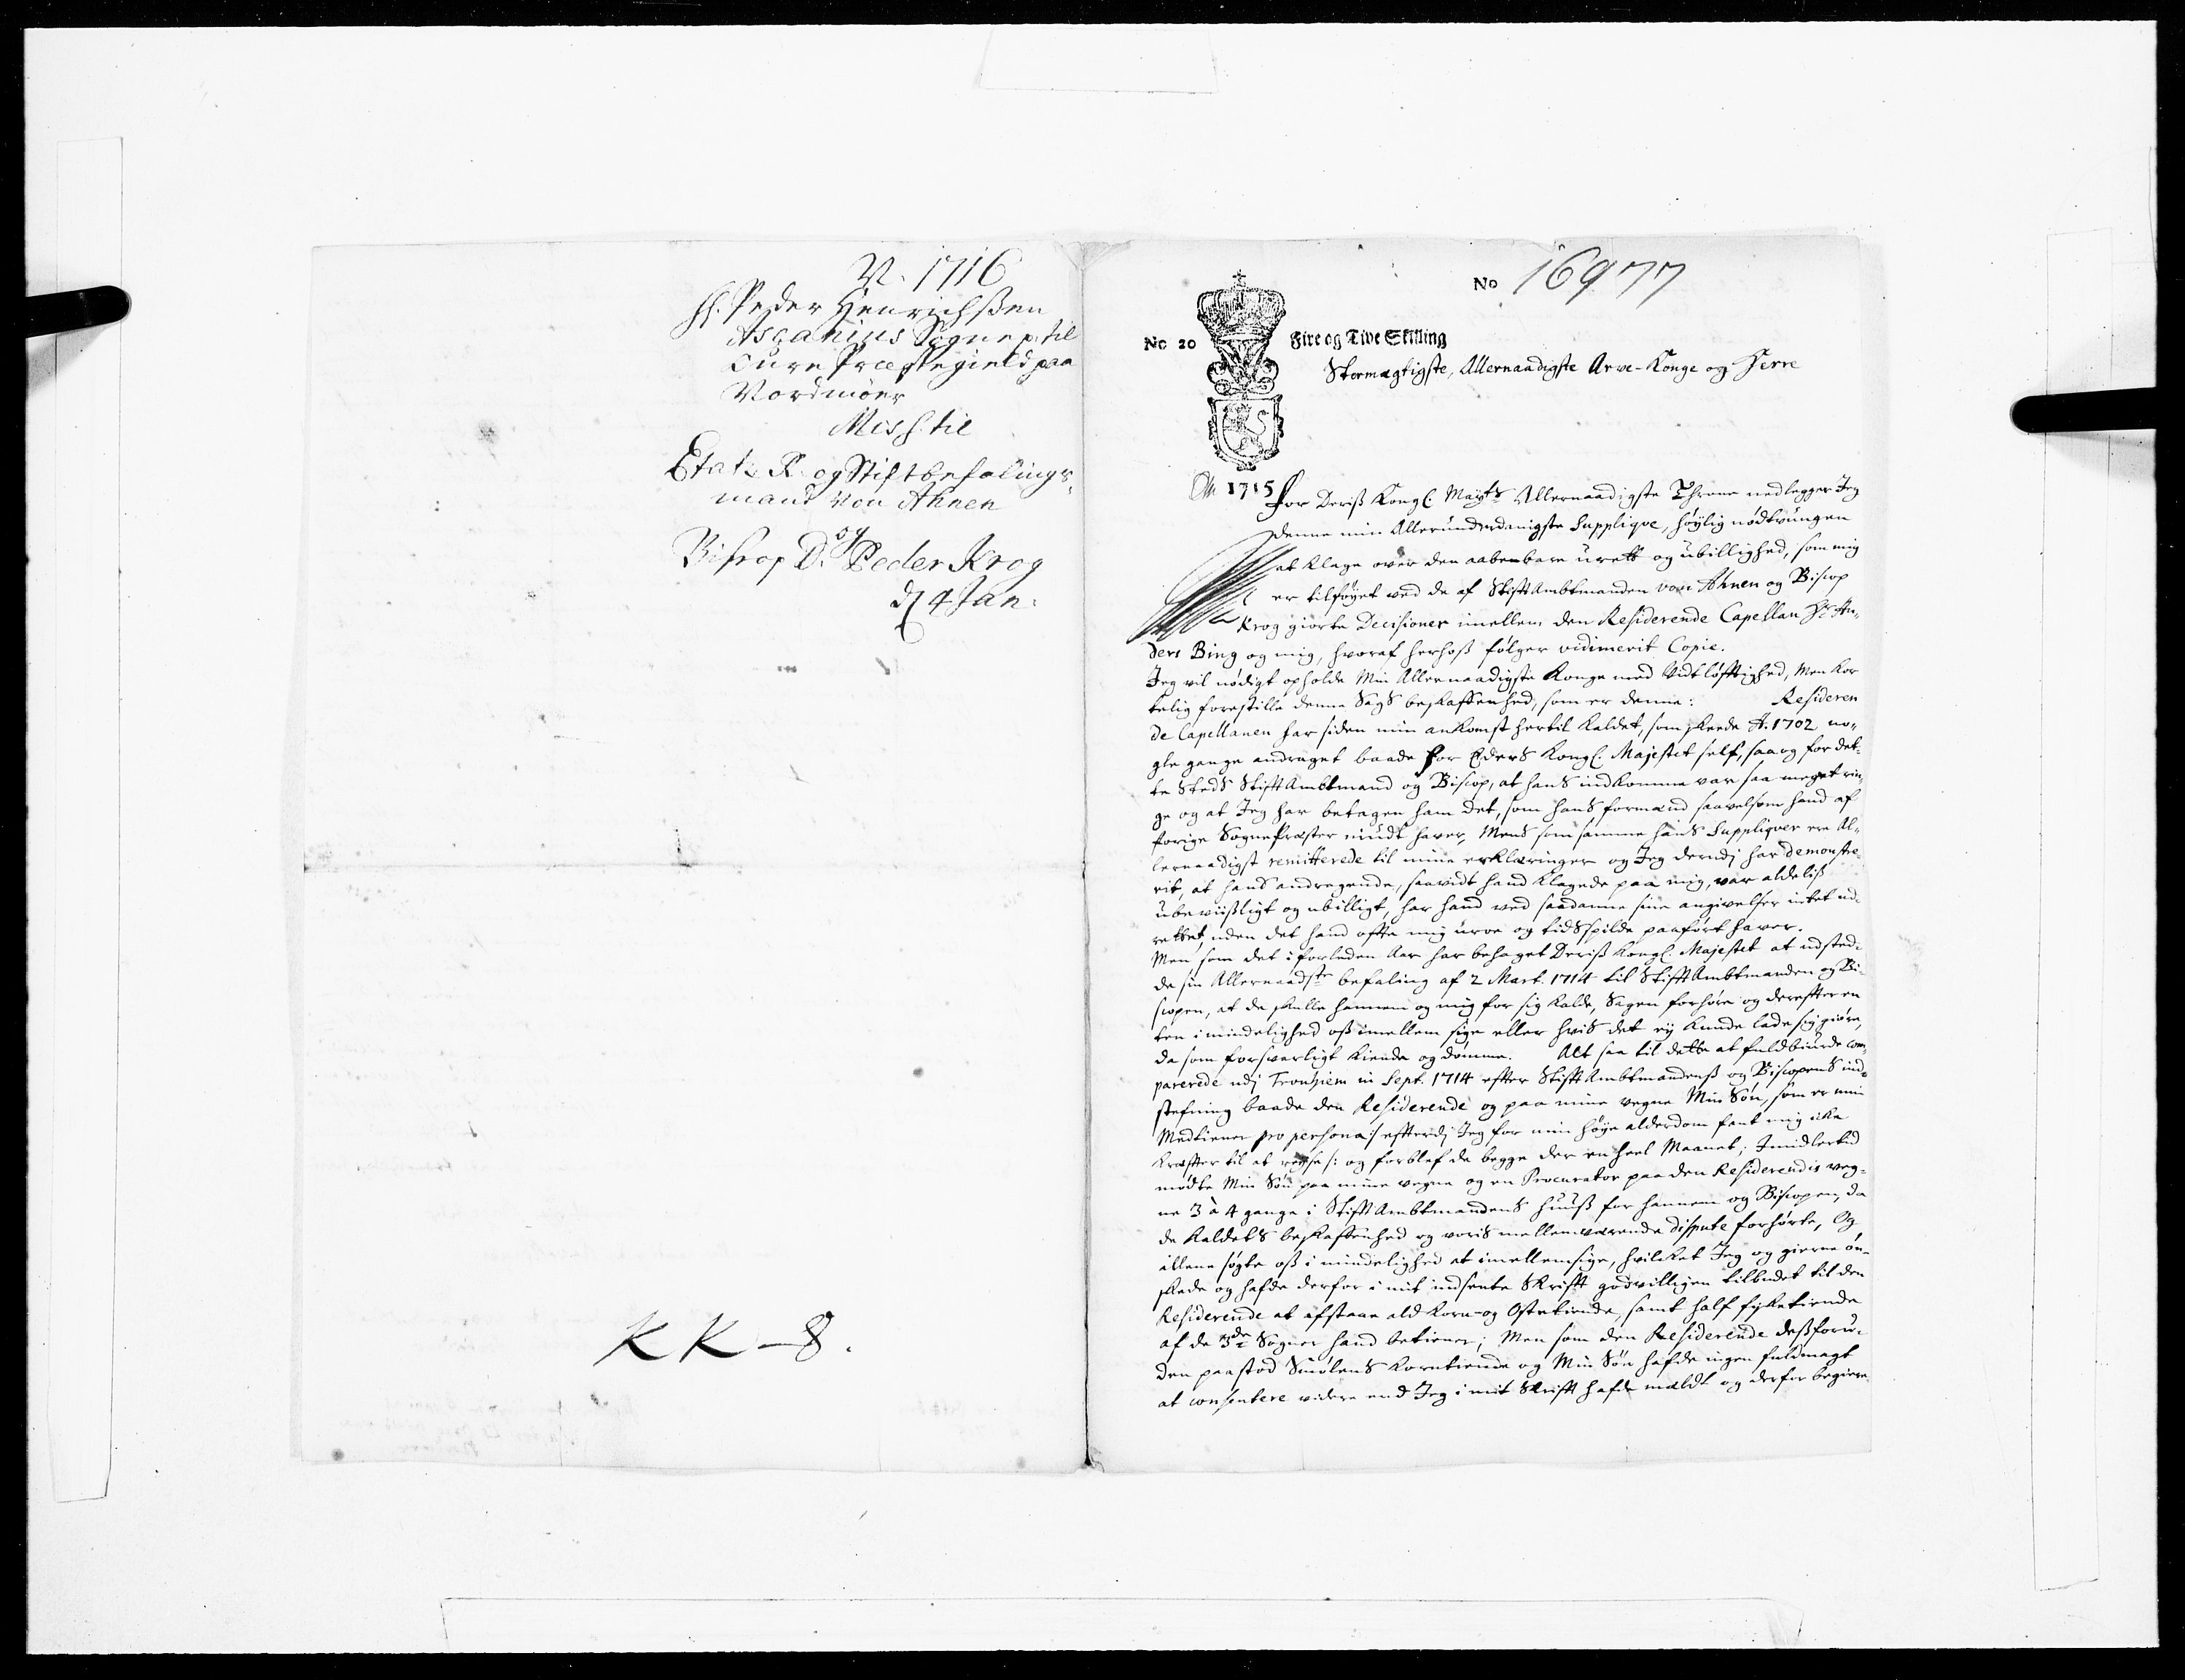 N. 1716
H. Peder Henrichsßen
Ascanius Sognep: til
Oure Præstegield paa
Nordmöer
Miss. til
Etats R. og Stiftbefalings-
mand Von Ahnen
og
Biscop D. Peder Krog
d 4 Jan:
KK-8.
No 16977
No 20
Fire og Tive Skilling
Stormægtigste, Allernaadigste Arve-Konge og Herre
Ao 1715
For Deriß Kongl: Mayts Allernaadigste Throne nedlegger Jeg
denne min Allerunderdanigste Supplique, høylig nødtvungen
at klage over den aabenbare urett og ubillighed, som mig
er tilføyet ved de af Stifft Ambtmanden von Ahnen og Biscop
Krog giorte Decisioner imellem den Residerende Capellan Hr An-
ders Bing og mig, hvoraf herhoß følger vidimerit Copie.
Jeg vil nødigt opholde Min Allernaadigste Konge med Vidtløfftighed, Men kor
telig forestille denne Sags beskaffenhed, som er denne: Resideren
de Capellanen har siden min ankomst hertil kaldet, som skeede A. 1702 no-
gle gange andraget baade for Eders Kongl. Majestet self, saa og for det-
te Steds Stifft Ambtmand og Biscop, at hans indkomme var saa meget rin-
ge og at Jeg har betagen ham det, som hans formænd saavelsom hand af
forige Sognepræster niudt haver, Mens som samme hans Suppliqver ere Al-
lernaadigst remitterede til mine erklæringer og Jeg derudj har demonstre-
rit, at hans andragende, saavidt hand klagede paa mig, var aldeliß
ubeviißligt og ubilligt, har hand ved saadanne sine angivelser intet ud-
rettet, uden det hand offte mig uroe og tidsspilde paaført haver.
Men som det i forleden Aar har behaget Deriß Kongl. Majestet at udsted-
de sin Allernaadste befaling af 2 Mart. 1714 til Stifft Ambtmanden og Bi-
scopen, at de skulle hannem og mig for sig kalde, Sagen forhøre og derefter en
ten i mindelighed oß imellem sige eller hvis det ej kunde lade sig giøre,
da som forsvarligt kiende og dømme. Alt saa til dette at fuldbiurde com-
parerede udj Tronhiem in Sept. 1714 efter Stifft Ambtmandenß og Biscopens ind-
stefning baade den Residerende og paa mine vegne Min Søn, som er min
Medtiener pro persona /: efterdj Jeg for min høye alderdom fant mig icke
kræffter til at reyse :/ og forblef de begge der en heel Maanet; Imidlertid
mødte Min Søn paa mine vegne og en Procurator paa den Residerendis veg-
ne 3 à 4 gange i Stifft Ambtmandens huuß for hannem og Biscopen, da
de kaldets beskaffenhed og voris mellemværende dispute forhørte, Og
allene søgte oß i mindelighed at imellemsige, hvilcket Jeg og gierne øn-
skede og hafde derfor i mit indsente Skrifft godvilligen tilbudet til den
Residerende at afstaae ald korn- og Ostetiende, samt half fisketiende
af de 3de Sogner hand betiener; Men som den Residerende deßforu-
den paastod Smølens korntiende og Min Søn hafde ingen fuldmagt
at consentere videre end Jeg i mit Skrifft hafde meldt og derfor begiere-